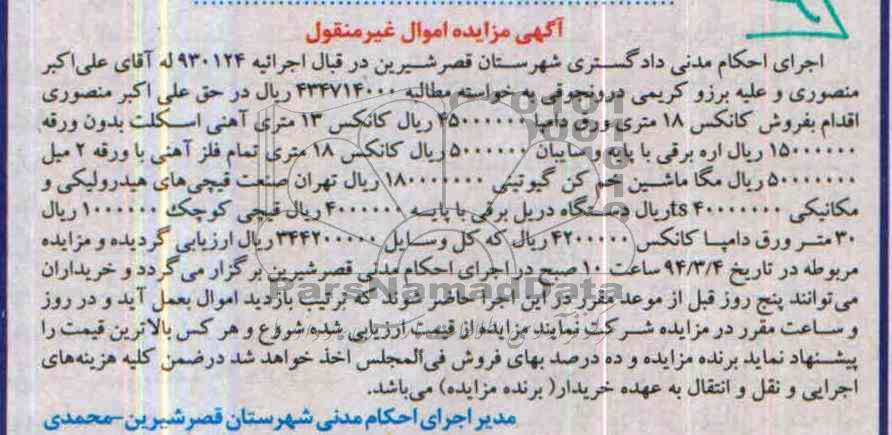 آگهی مزایده اموال غیرمنقول
اجرای احکام مدنی دادگستری شهرستان قصرشیرین در قبال اجرائیه ۹۳۰۱۲۴ له آقای علی‌اکبر
منصوری و علیه برزو کریمی درونجوقی به خواسته مطالبه ۴۳۴۷۱۴۰۰۰ ریال در حق علی اکبر منصوری
اقدام بفروش کانکس ۱۸ متری ورق دامپا ۴۵۰۰۰۰۰۰ ریال کانکس ۱۳ متری آهنی اسکلت بدون ورقه
۱۵۰۰۰۰۰۰ ریال اره برقی با پایه و سایبان ۵۰۰۰۰۰۰ ریال کانکس ۱۸ متری تمام فلز آهنی با ورقه ۲ میل
۵۰۰۰۰۰۰۰ ریال مگا ماشین خم کن گیوتینی ۱۸۰۰۰۰۰۰۰ ریال تهران صنعت قیچی‌های هیدرولیکی و
مکانیکی ts ۴۰۰۰۰۰۰۰ریال دستگاه دریل برقی با پایه ۴۰۰۰۰۰۰ ریال قیچی کوچک ۱۰۰۰۰۰۰ ریال
۳۰ متر ورق دامپا کانکس ۴۲۰۰۰۰۰ ریال که کل وسایل ۳۴۴۲۰۰۰۰۰ ریال ارزیابی گردیده و مزایده
مربوطه در تاریخ ۹۴/۳/۴ ساعت ۱۰ صبح در اجرای احکام مدنی قصرشیرین برگزار می‌گردد و خریداران
می‌توانند پنج روز قبل از موعد مقرر در این اجرا حاضر شوند که ترتیب بازدید اموال بعمل آید و در روز
و ساعت مقرر در مزایده شرکت نمایند مزایده از قیمت ارزیابی شده شروع و هر کس بالاترین قیمت را
پیشنهاد نماید برنده مزایده و ده درصد بهای فروش فی‌المجلس اخذ خواهد شد درضمن کلیه هزینه‌های
اجرایی و نقل و انتقال به عهده خریدار( برنده مزایده) می‌باشد.
مدیر اجرای احکام مدنی شهرستان قصرشیرین-محمدی
ParsNamadData